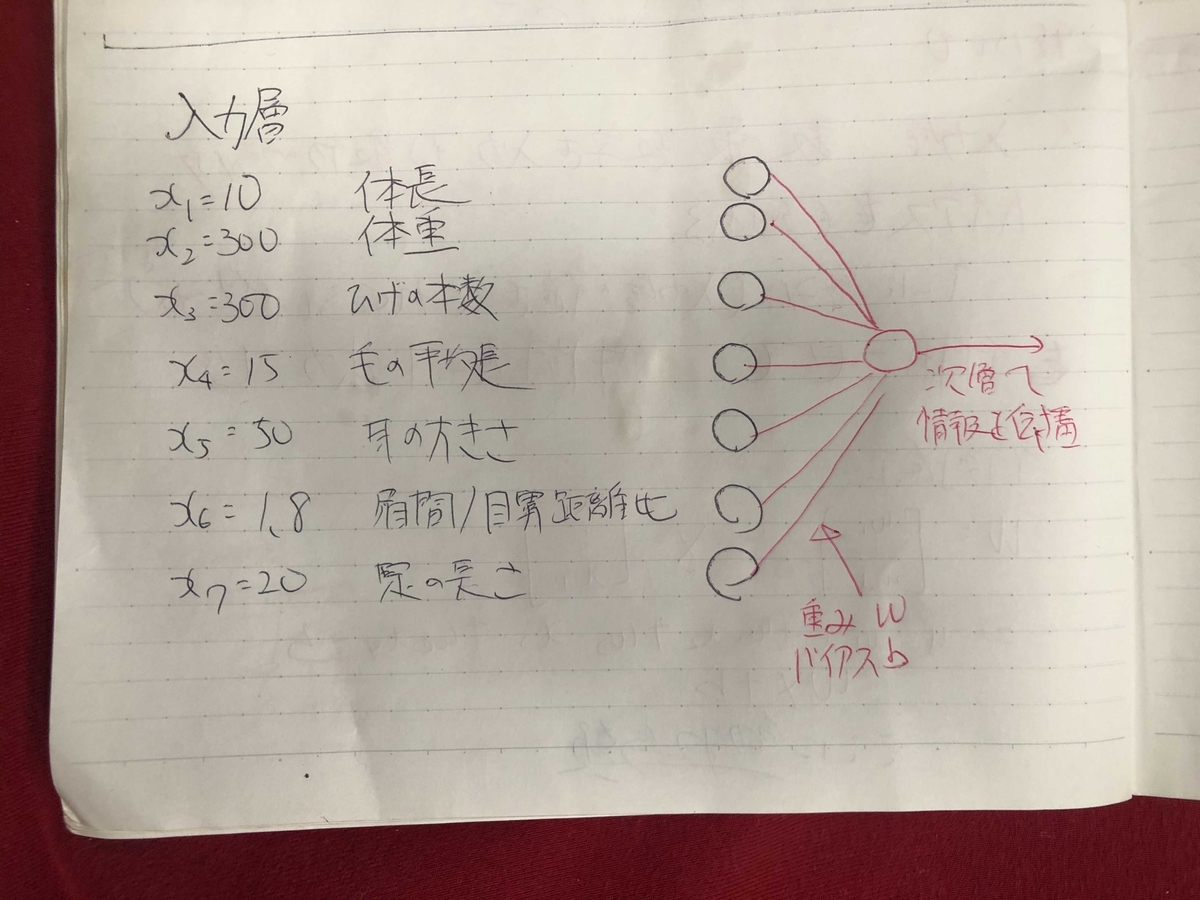 入力層
x₁=10 体長
x₂=300 体重
x₃=300 ひげの本数
x₄=15 毛の平均長
x₅=50 耳の大きさ
x₆=1.8 肩間/目異距離比
x₇=20 尾の長さ
次層へ
情報を伝播
重み W
バイアス b